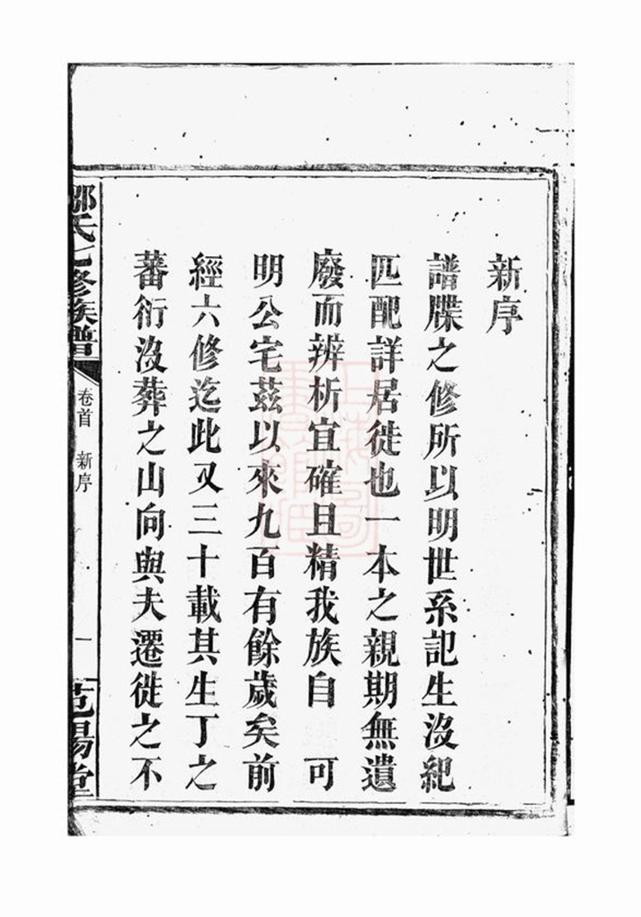 新序
譜牒之修所以明世系記生沒紀
匹配詳居徙也一本之親期無遺
廢而辨析宜確且精我族自　可
明公宅茲以來九百有餘歲矣前
經六修迄此又三十載其生丁之
蕃衍沒葬之山向與夫遷徙之不
鄒氏七修族譜
卷首　新序
一
范陽堂